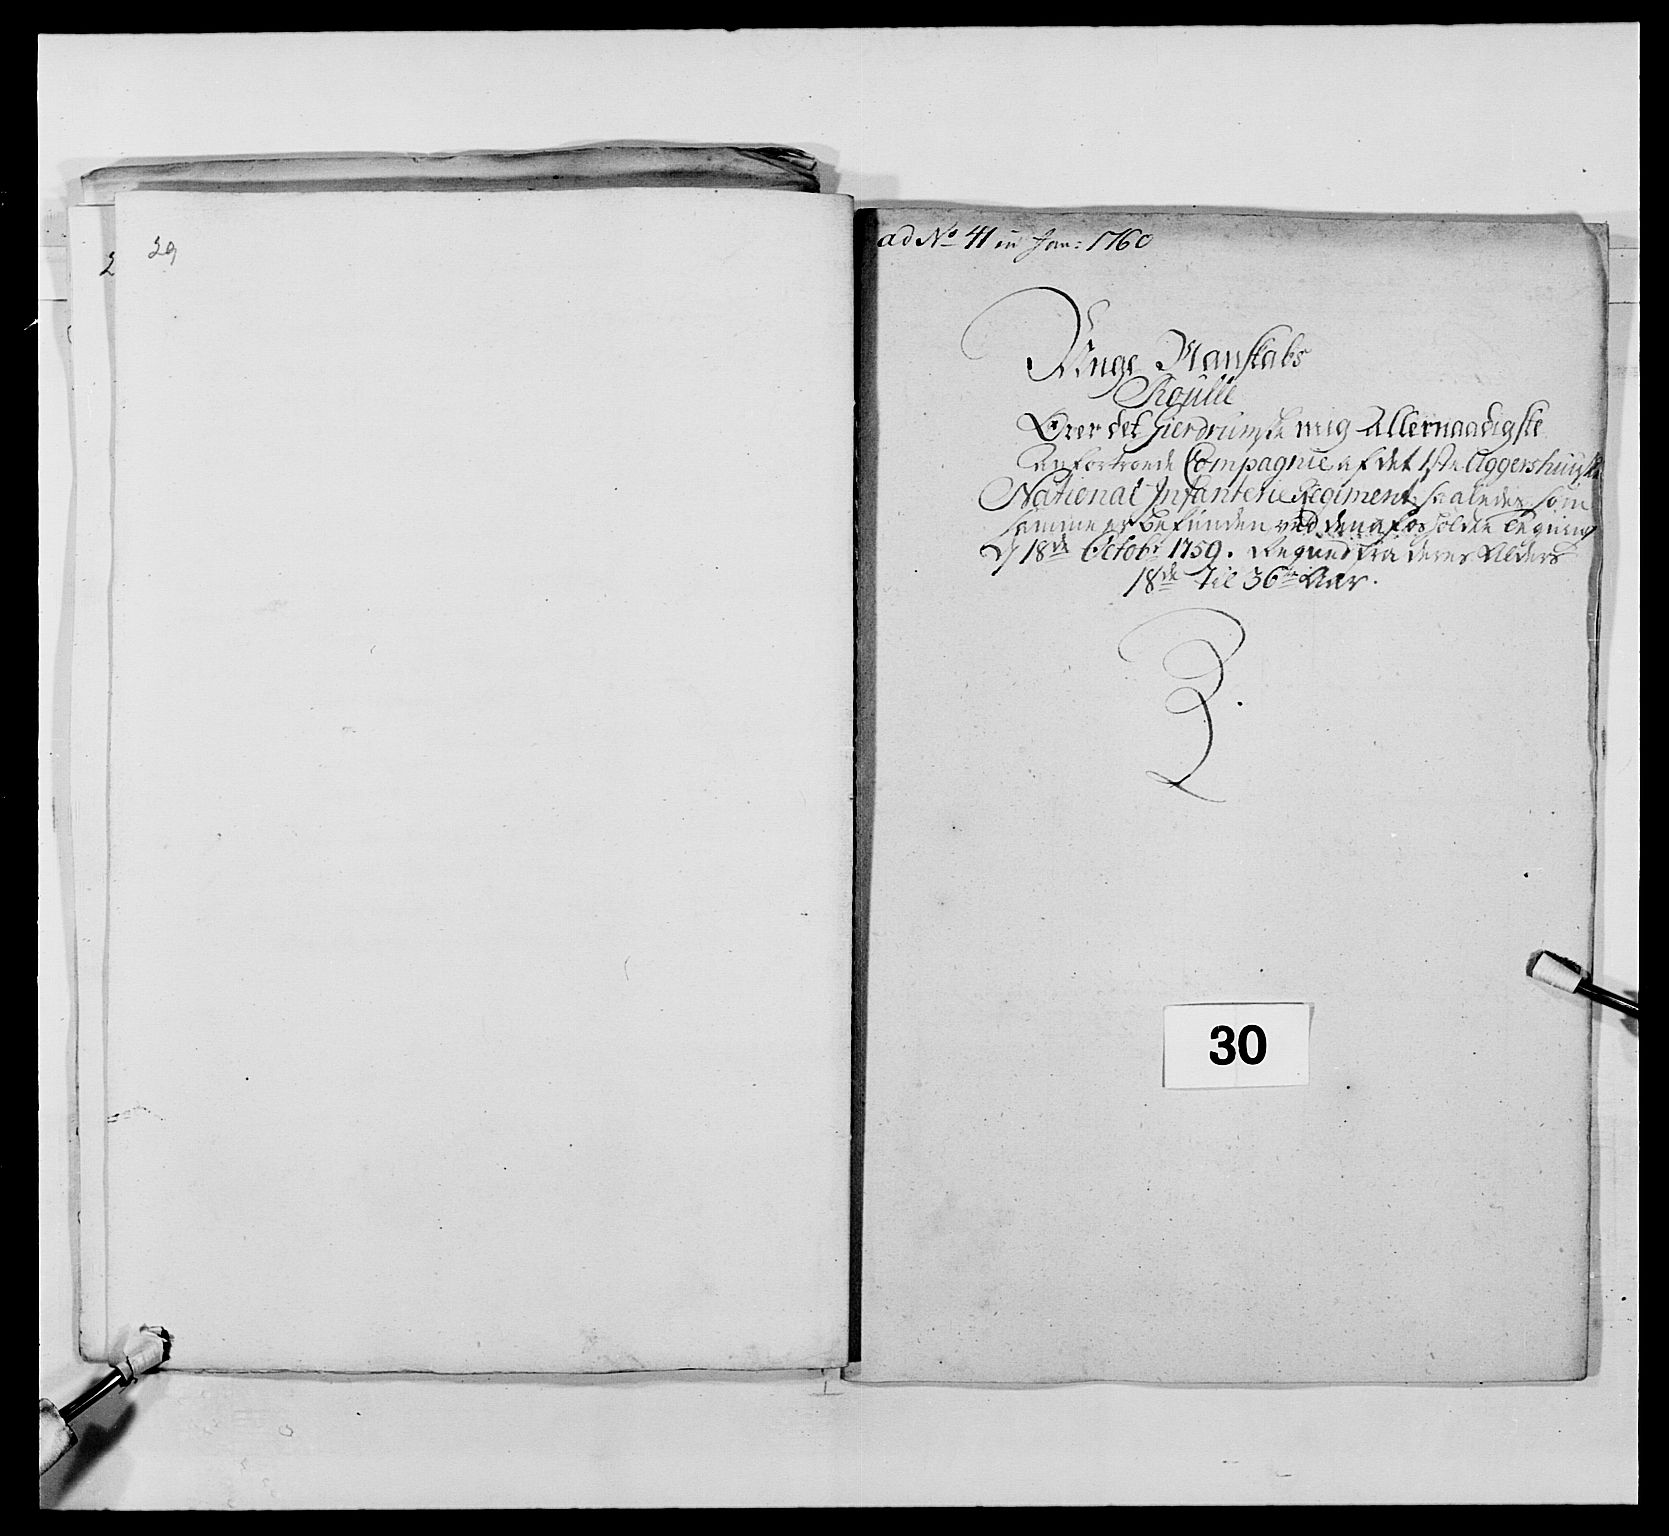 29
2
ad No 41 in Jan: 1760
Unge Manskabs
Roulle
Over det Gierdrumske mig Allernaadigste
anfortroede Compagnie af det 1ste Aggershuuske
National Infanterie Regiment, saaledes som
samme er befunden ved den afholdte Segning
d 18de Octobr 1759. Regned fra deres Alders
18de til 36te Aar.
30